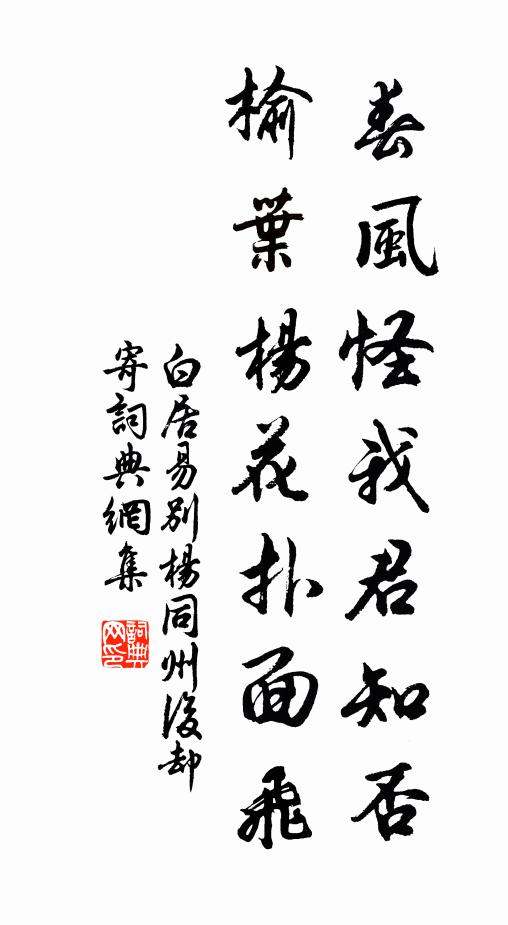 春風怪我君知否
榆葉楊花扑面飛
白居易別楊同州後却
寄詞典網集
詞典
网印